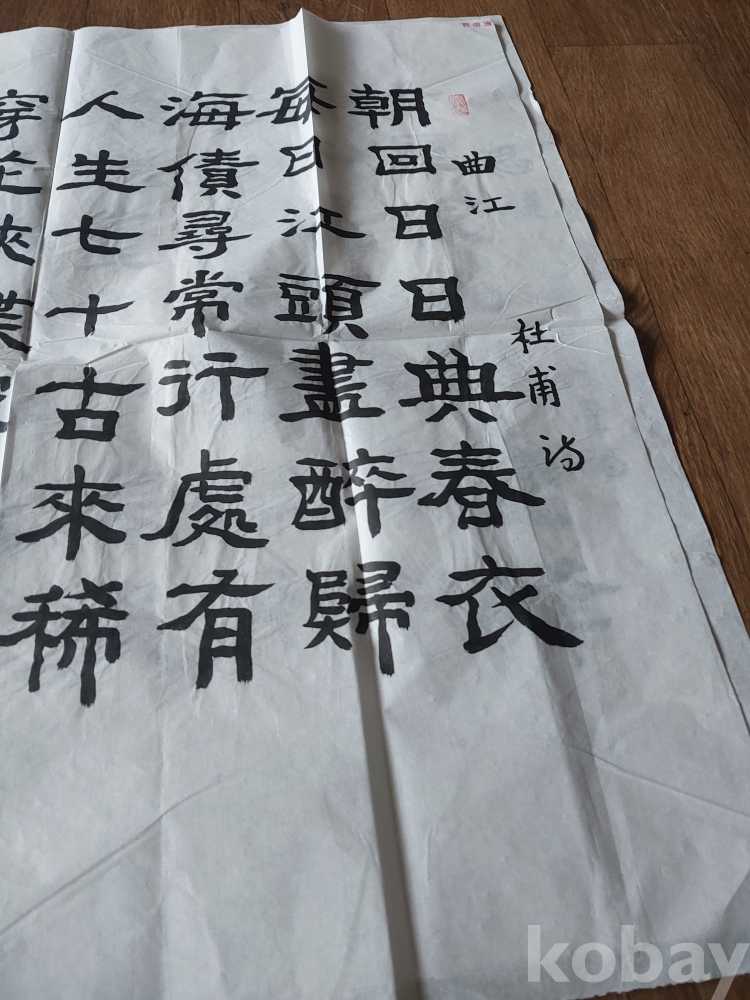 曲江
杜甫詩
朝回日日典春衣
每日江頭盡醉歸
海債尋常行處有
人生七十古來稀
穿
kobay